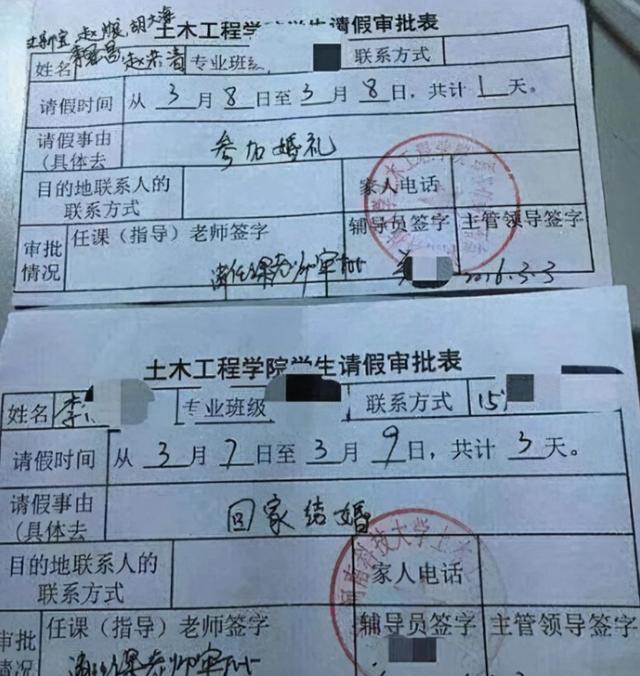 赵媛 胡大海
土木工程学院学生请假审批表
姓名 赵荣清 专业班级 联系方式
请假时间 从 3 月 8 日至 3 月 8 日，共计 1 天。
请假事由
（具体去
参加婚礼
目的地联系人的
联系方式
家人电话
审批
情况
任课（指导）老师签字
辅导员签字
主管领导签字
请任课老师审批
2016.3.3
土木工程学院学生请假审批表
姓名 李 专业班级 联系方式 15
请假时间 从 3 月 7 日至 3 月 9 日，共计 3 天。
请假事由
（具体去
回家结婚
目的地联系人的
联系方式
家人电话
河南科技大学土木
审批
情况
任课（指导）老师签字
辅导员签字
主管领导签字
请任课老师审批